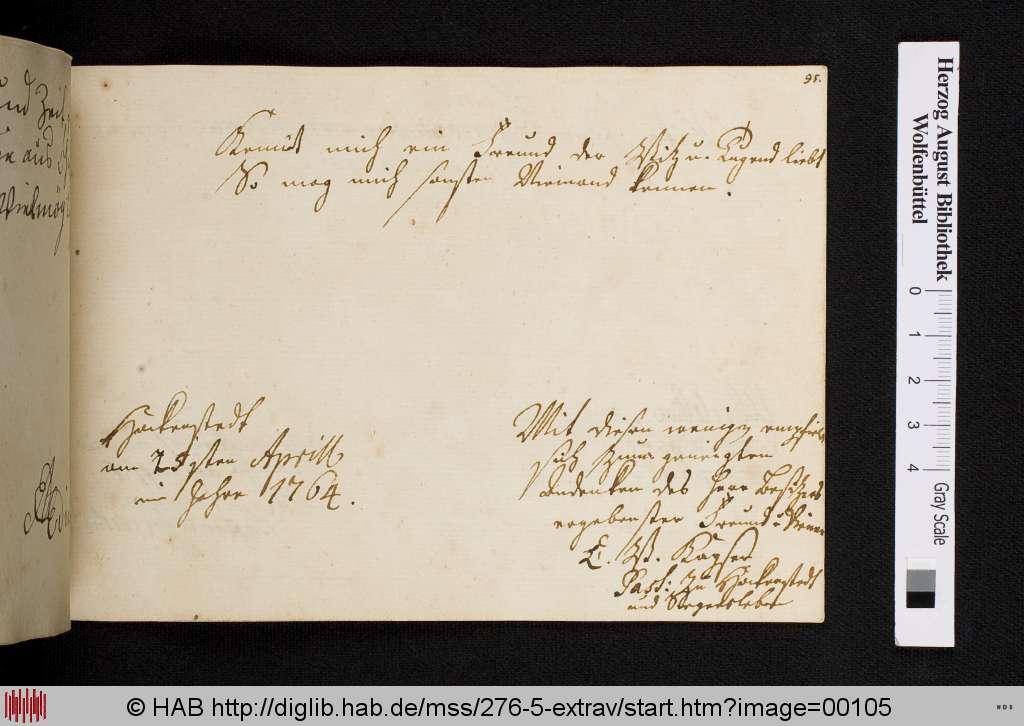 95.
Kennt mich ein Freund der Witz u. Tugend liebt
So mag mich sonsten Niemand kennen.
Hackenstedt
am 25gsten Aprill
im Jahre 1764.
Mit diesen wenigen empfiehlt
sich zum geneigten
Andenken des Herr Besitzers
ergebenster Freund u. Diener
E. W. Kayser
Past: zu Hackenstedt
und
und Zeit
aus
Herzog August Bibliothek
Wolfenbüttel
0 1 2 3 4
Gray Scale
© HAB http://diglib.hab.de/mss/276-5-extrav/start.htm?image=00105
WDB